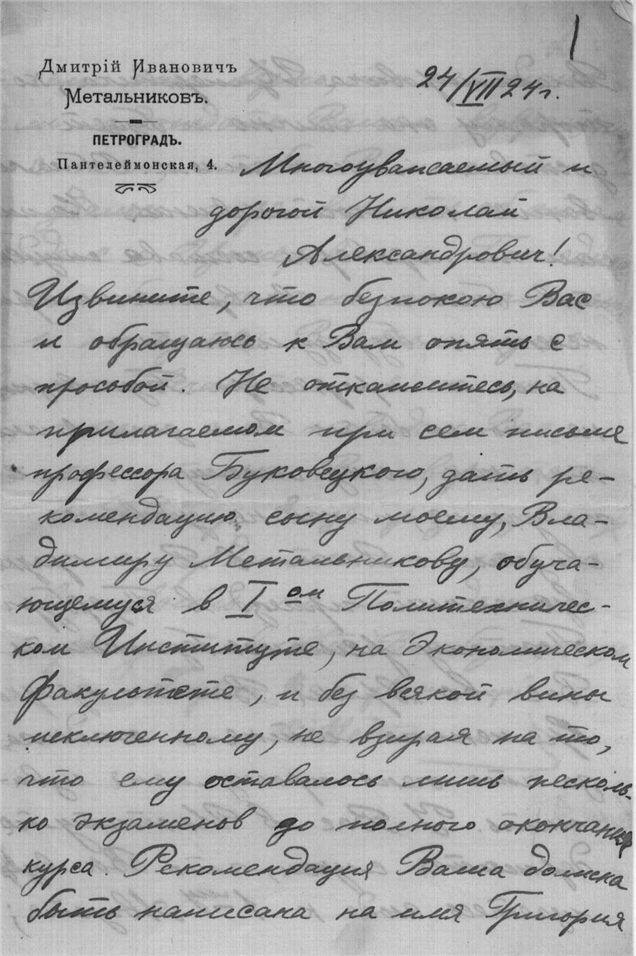 1
Дмитрій Ивановичъ
Метальниковъ.
ПЕТРОГРАДЪ.
Пантелеймонская, 4.
24/VII 24 г.
Многоуважаемый и
дорогой Николай
Александрович!
Извините, что безпокою Вас
и обращаюсь к Вам опять с
просьбой. Не откажитесь, на
прилагаемом при сем письме
профессора Буковецкого, дать ре-
комендацию сыну моему, Вла-
димиру Метальникову, обуча-
ющемуся в I ом Политехничес-
ком Институте, на экономическом
факультете, и без всякой вины
исключенному, не взирая на то,
что ему оставалось лишь несколь-
ко экзаменов до полного окончания
курса. Рекомендация Ваша должна
быть написана на имя Григория